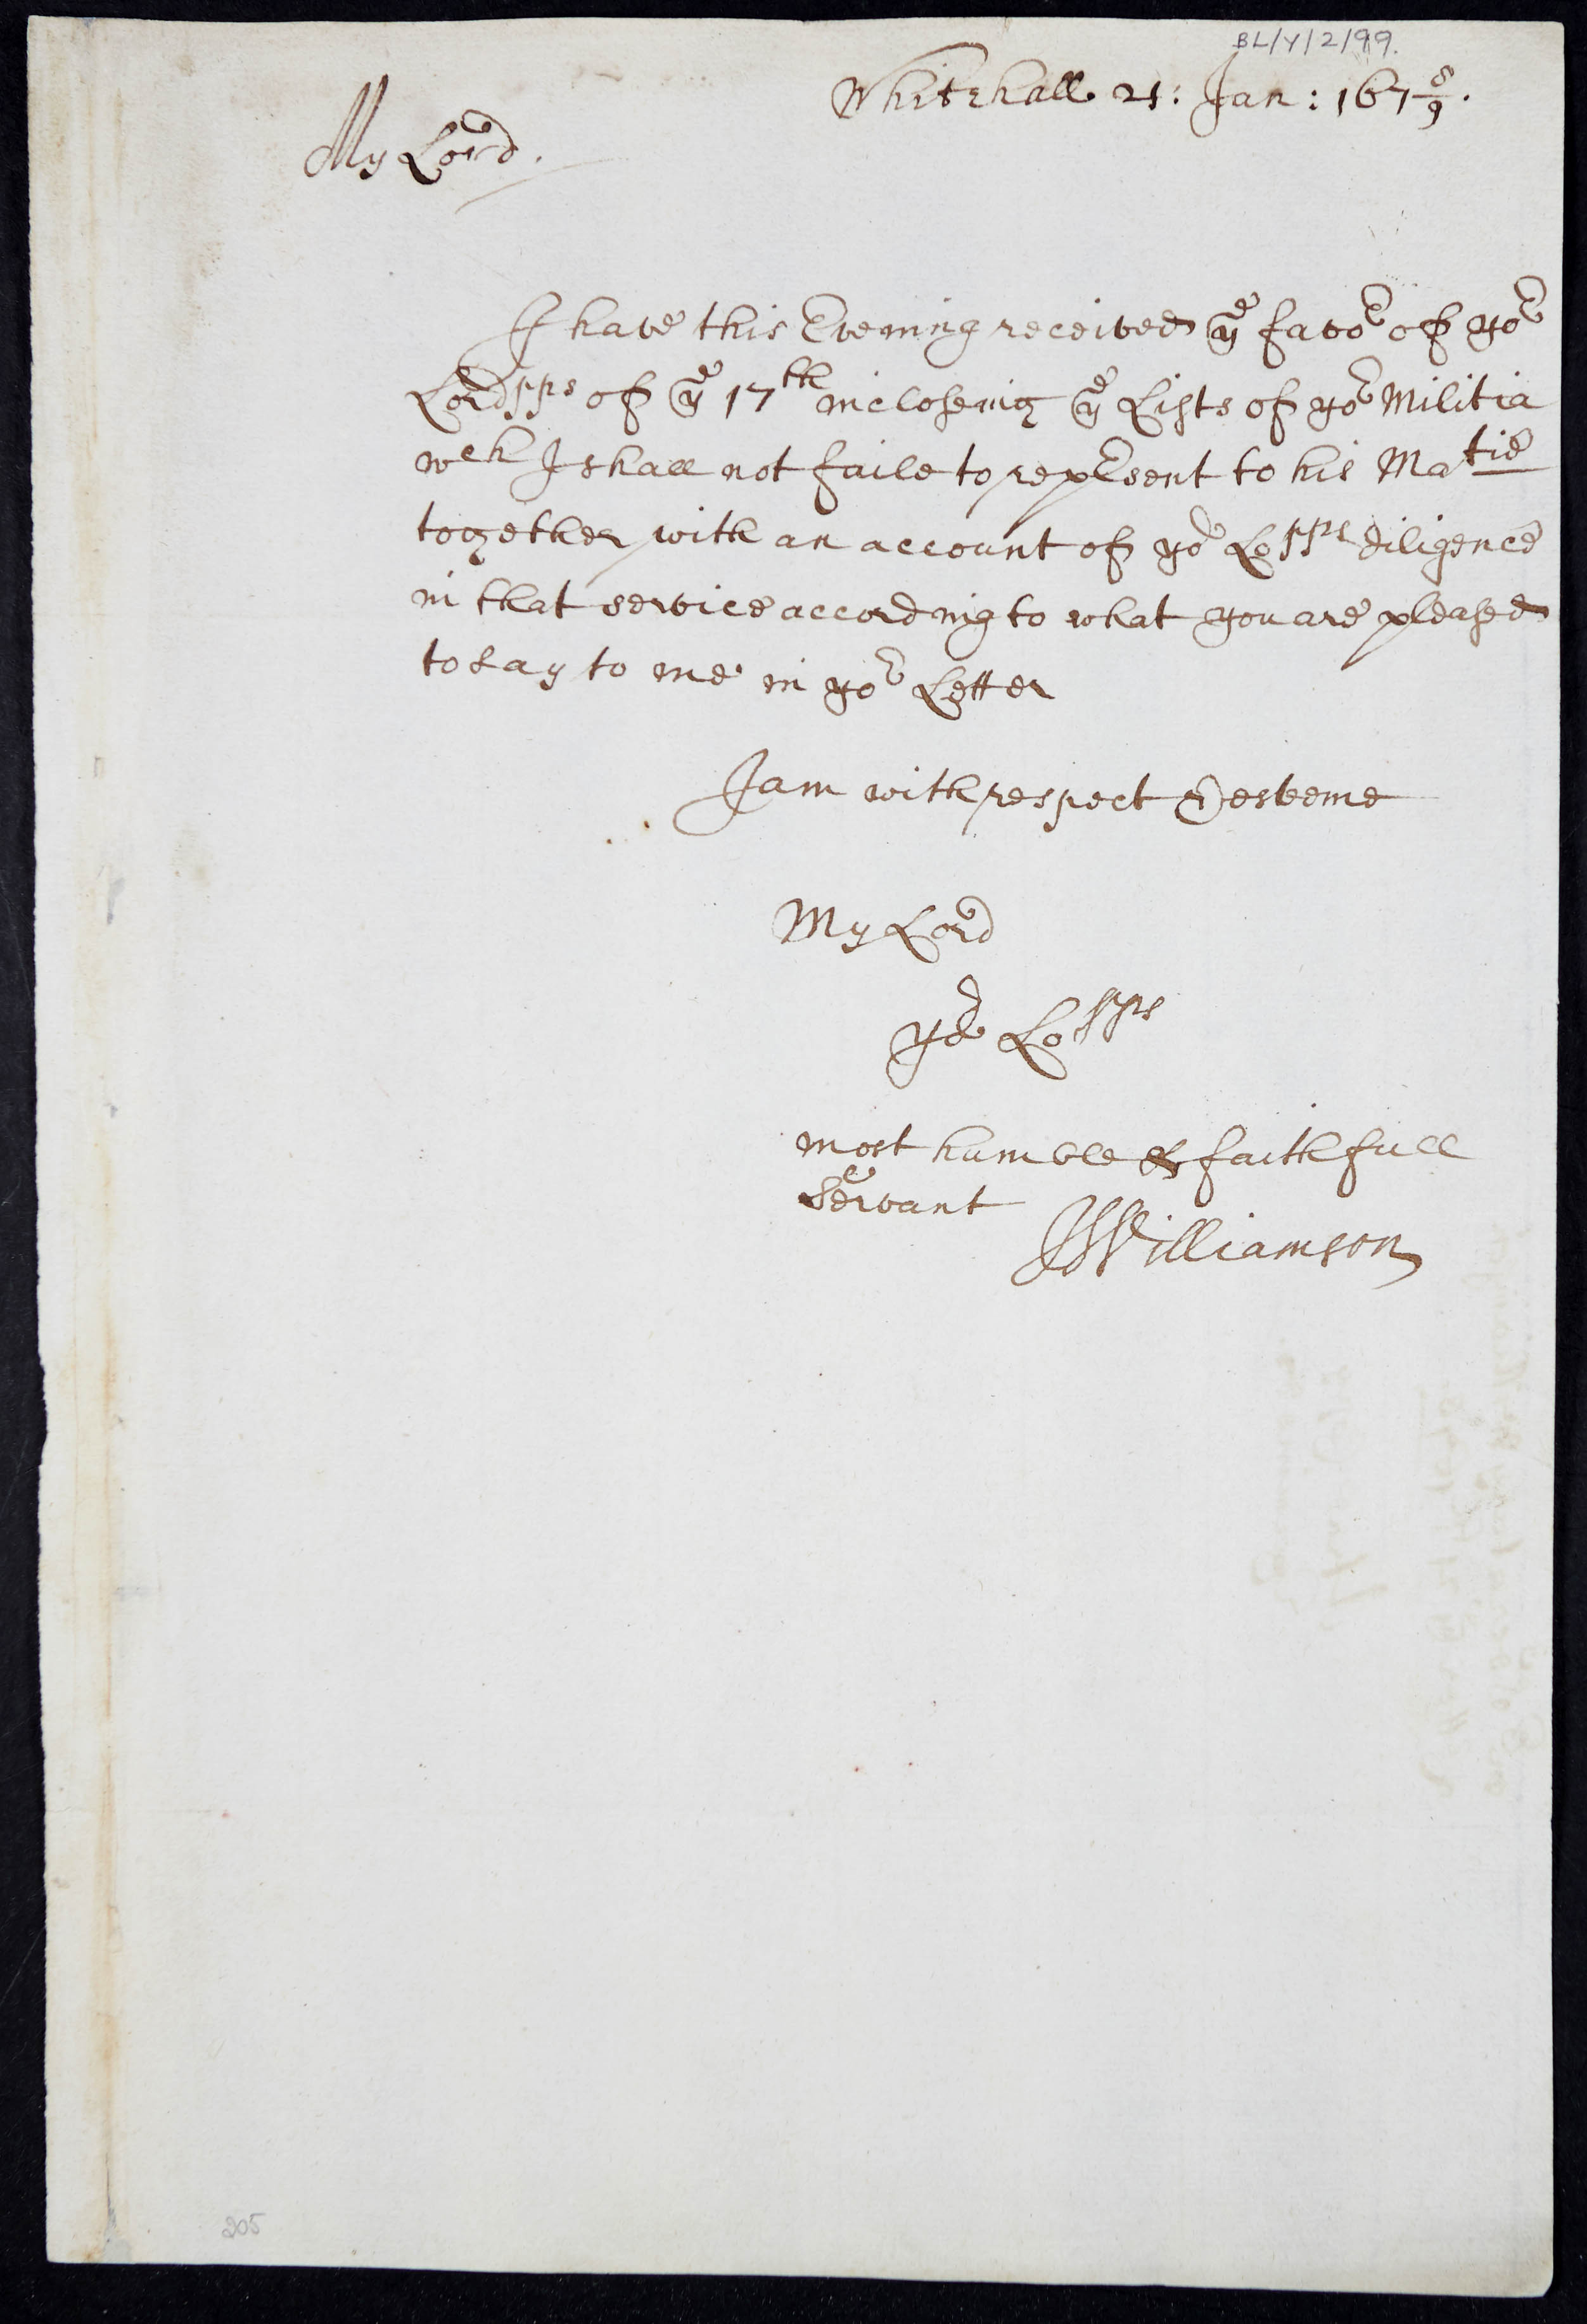 BL/Y/2/99.
Whitehall 21: Jan: 167 8/9.
My Lord.
I have this Evening received ye favor of yor
Lordspps of ye 17th inclosing ye Lists of yor Militia
wch I shall not faile to rep̃sent to his Matie
together with an account of yor Lospps diligence
in that service according to what you are pleased
to say to me in yor Letter
I am with respect & esteeme
My Lord
yor Lospps
most humble & faithfull
Servant
JWilliamson
205